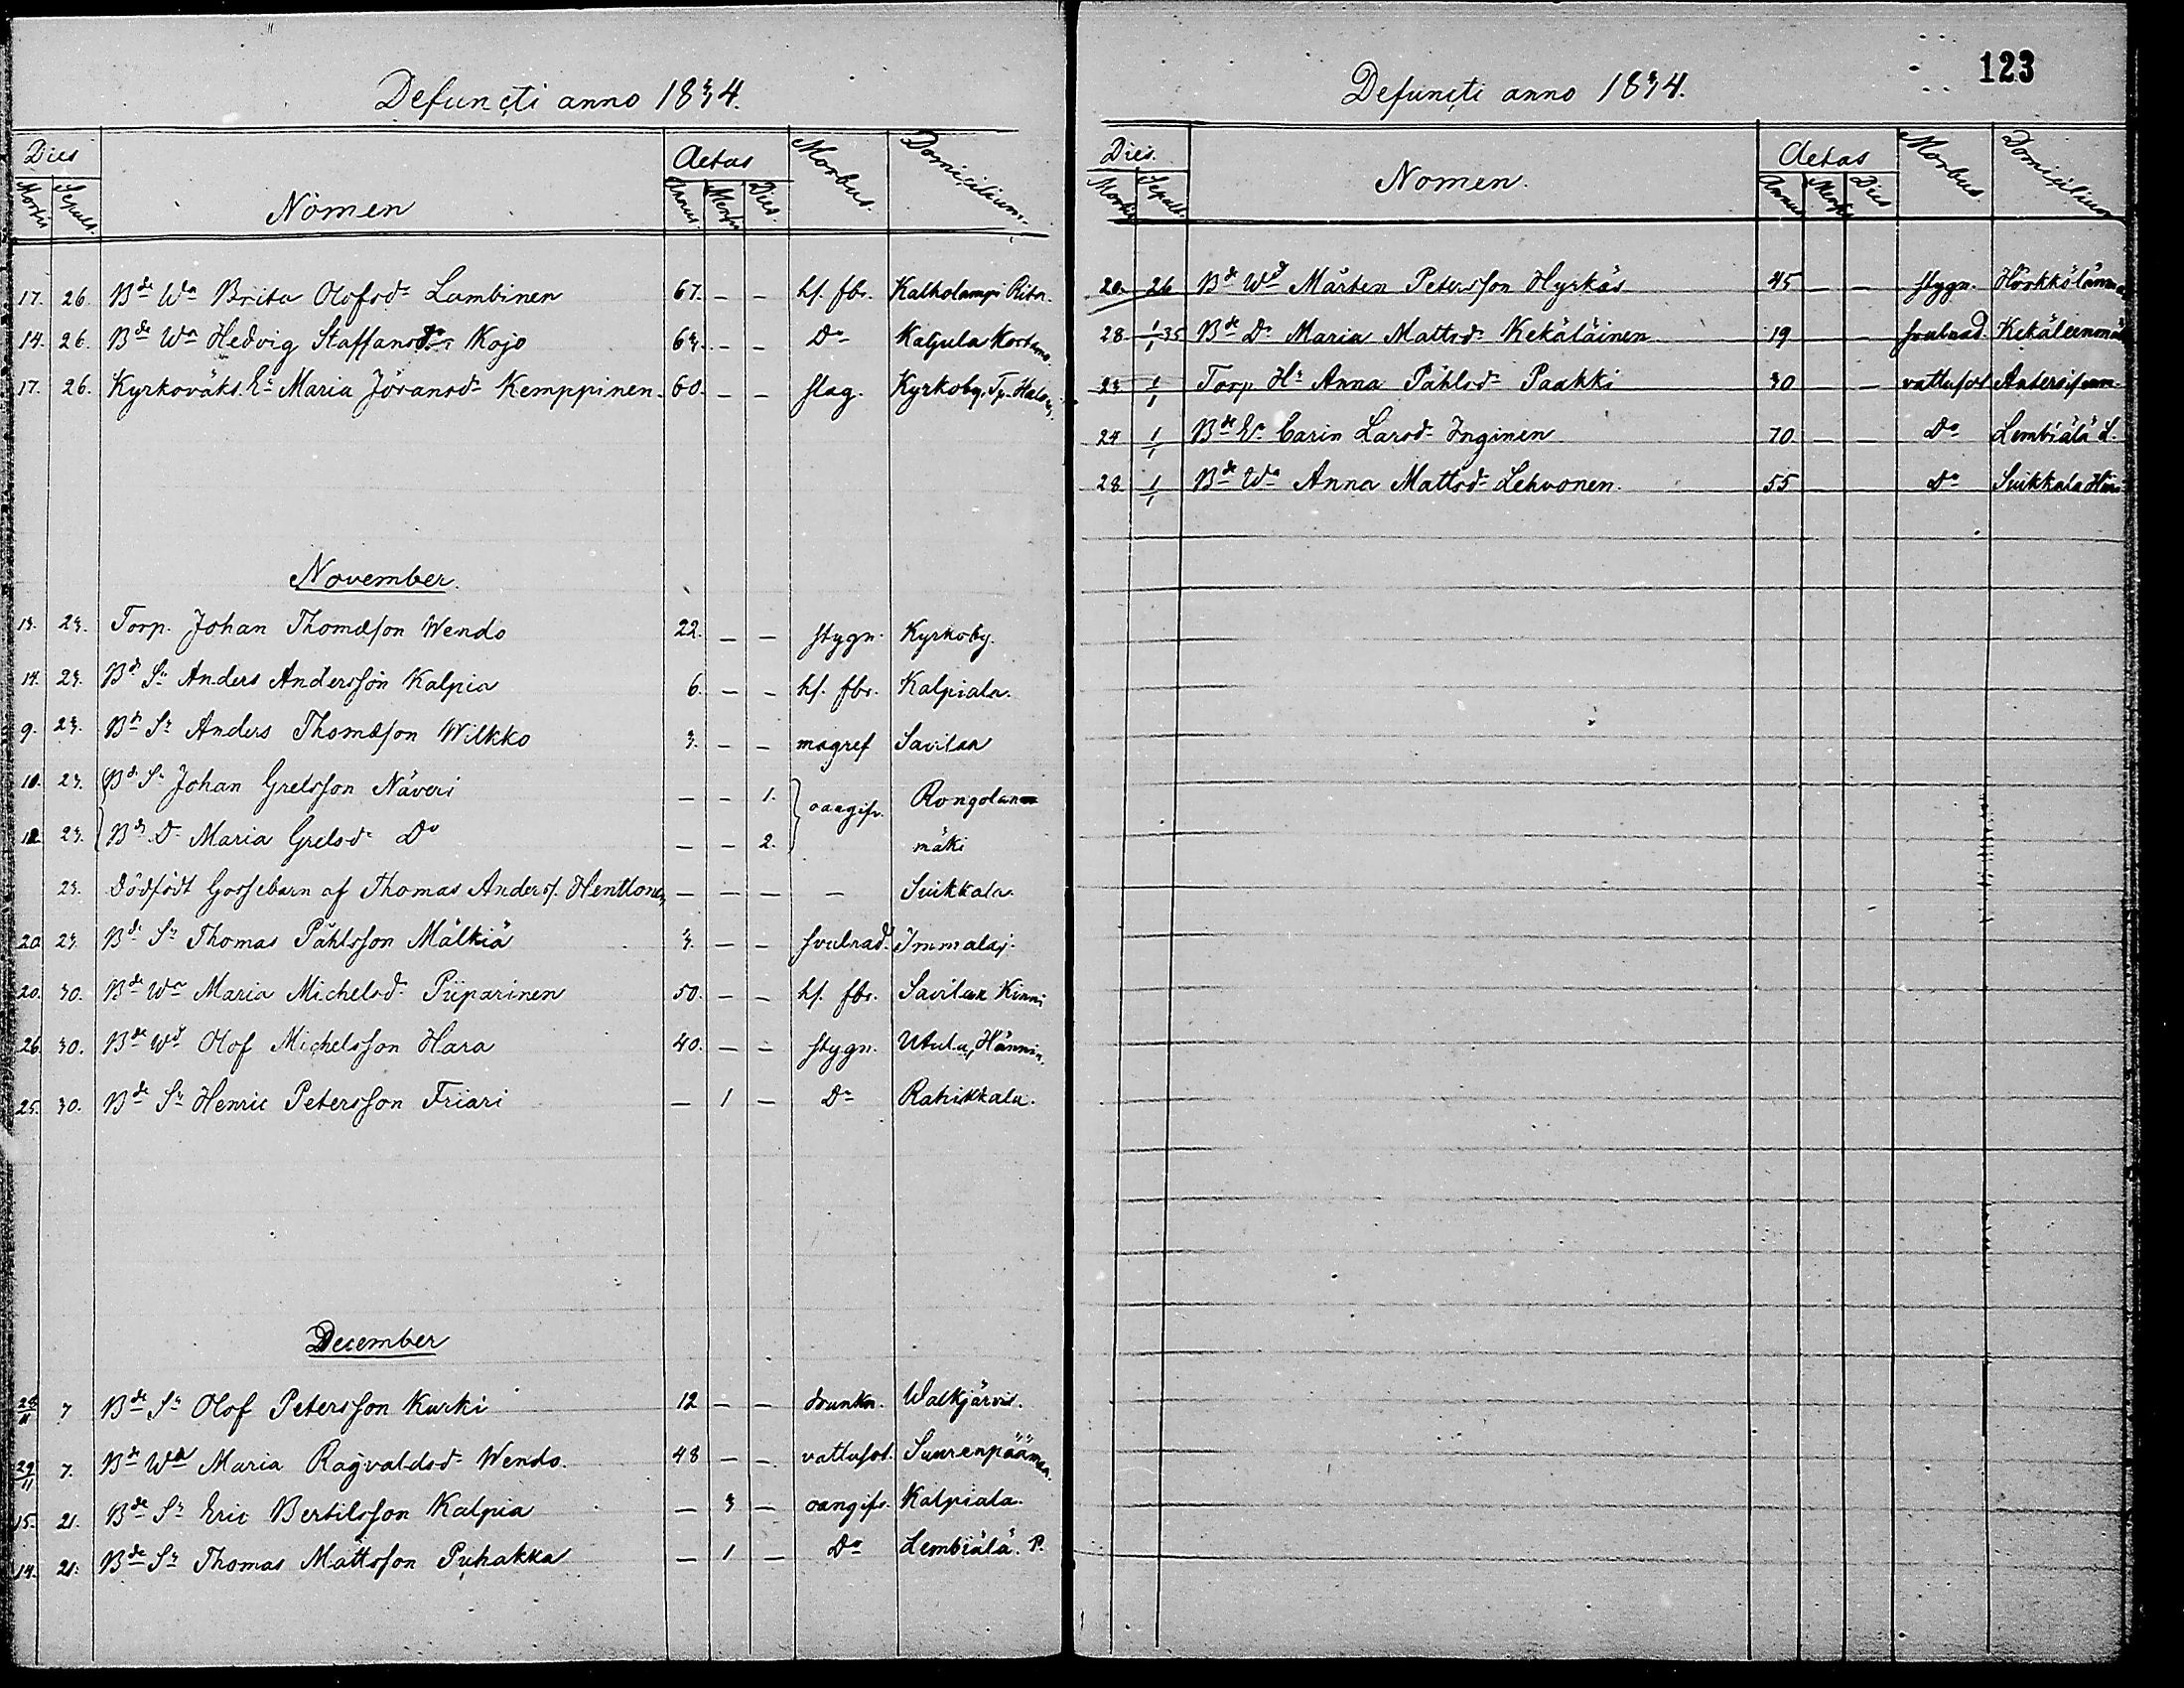 Defuncti anno 1834.
Dies Nomen Aetas Morbus. Domicilium.
Mortis Sepult. Annus. Mens. Dies.
17. 26. Bde Wa Brita Olofsdr Lambinen 67. — — hf. fbr. Kalholampi Rita.
14. 26. Bde Wa Hedvig Staffansdr Kojo 63. — — Do Kaljula
17. 26. Kyrkoväkt. Ea Maria Jöransdr Kemppinen. 60. — — slag. Kyrkoby.
November.
13. 23. Torp. Johan Thomasson Wendo 22. — — stygn. Kyrkoby.
14. 23. Bde Sn Anders Andersson Kalpia 6. — — hf. fbr. Kalpiala.
9. 23. Bde Sn Anders Thomasson Wilkko 3. — — magref Savilax
10. 23. Bde Sn Johan Grelsson Näveri — — 1. oangifv. Rongolan
12. 23. Bde Dr Maria Grelsdr Do — — 2. mäki
23. Dödfödt Gossebarn af Thomas Anderss. Henttonen — — — — Suikkala.
20. 23. Bde Sn Thomas Påhlsson Mälkiä 3. — — svulnad. Immalaj.
20. 30. Bde Wa Maria Michelsdr Piiparinen 50. — — hf. fbr. Savilax Kinni
26. 30. Bde Wd Olof Michelsson Hara 40. — — stygn. Utula, Hännin.
25. 30. Bde Sn Henric Petersson Friari — 1 — Do Rahikkala.
December
28/11 7 Bde Sn Olof Petersson Kurki 12 — — drunkn. Walkjärvi.
29/11 7. Bde Wa Maria Ragvaldsdr Wendo. 48 — — vattusot. Suurenpäänm.
15. 21. Bde Sn Eric Bertilsson Kalpia — 3 — oangifv. Kalpiala.
14. 21. Bde Sn Thomas Mattsson Puhakka — 1 — Do Lembiälä. P.
123
Defuncti anno 1834.
Dies. Nomen. Aetas Morbus. Domicilium
Mortis Sepult. Annus Mens. Dies
20. 26 Bde Wd Mårten Petersson Hyrkäs 45 — — stygn. Hörkkölänm
28. 1/1 35 Bde Dr Maria Mattsdr Kekäläinen 19 — — svulnad. Kekäleenmäk
23 1/1 Torp Hu Anna Påhlsdr Paakki 30 — — vattusot
24 1/1 Bde Ea Carin Larsdr Inginen 70 — — Do Lembiälä L.
28 1/1 Bde Wa Anna Mattsdr Lehvonen. 55 — — Do Suikkala